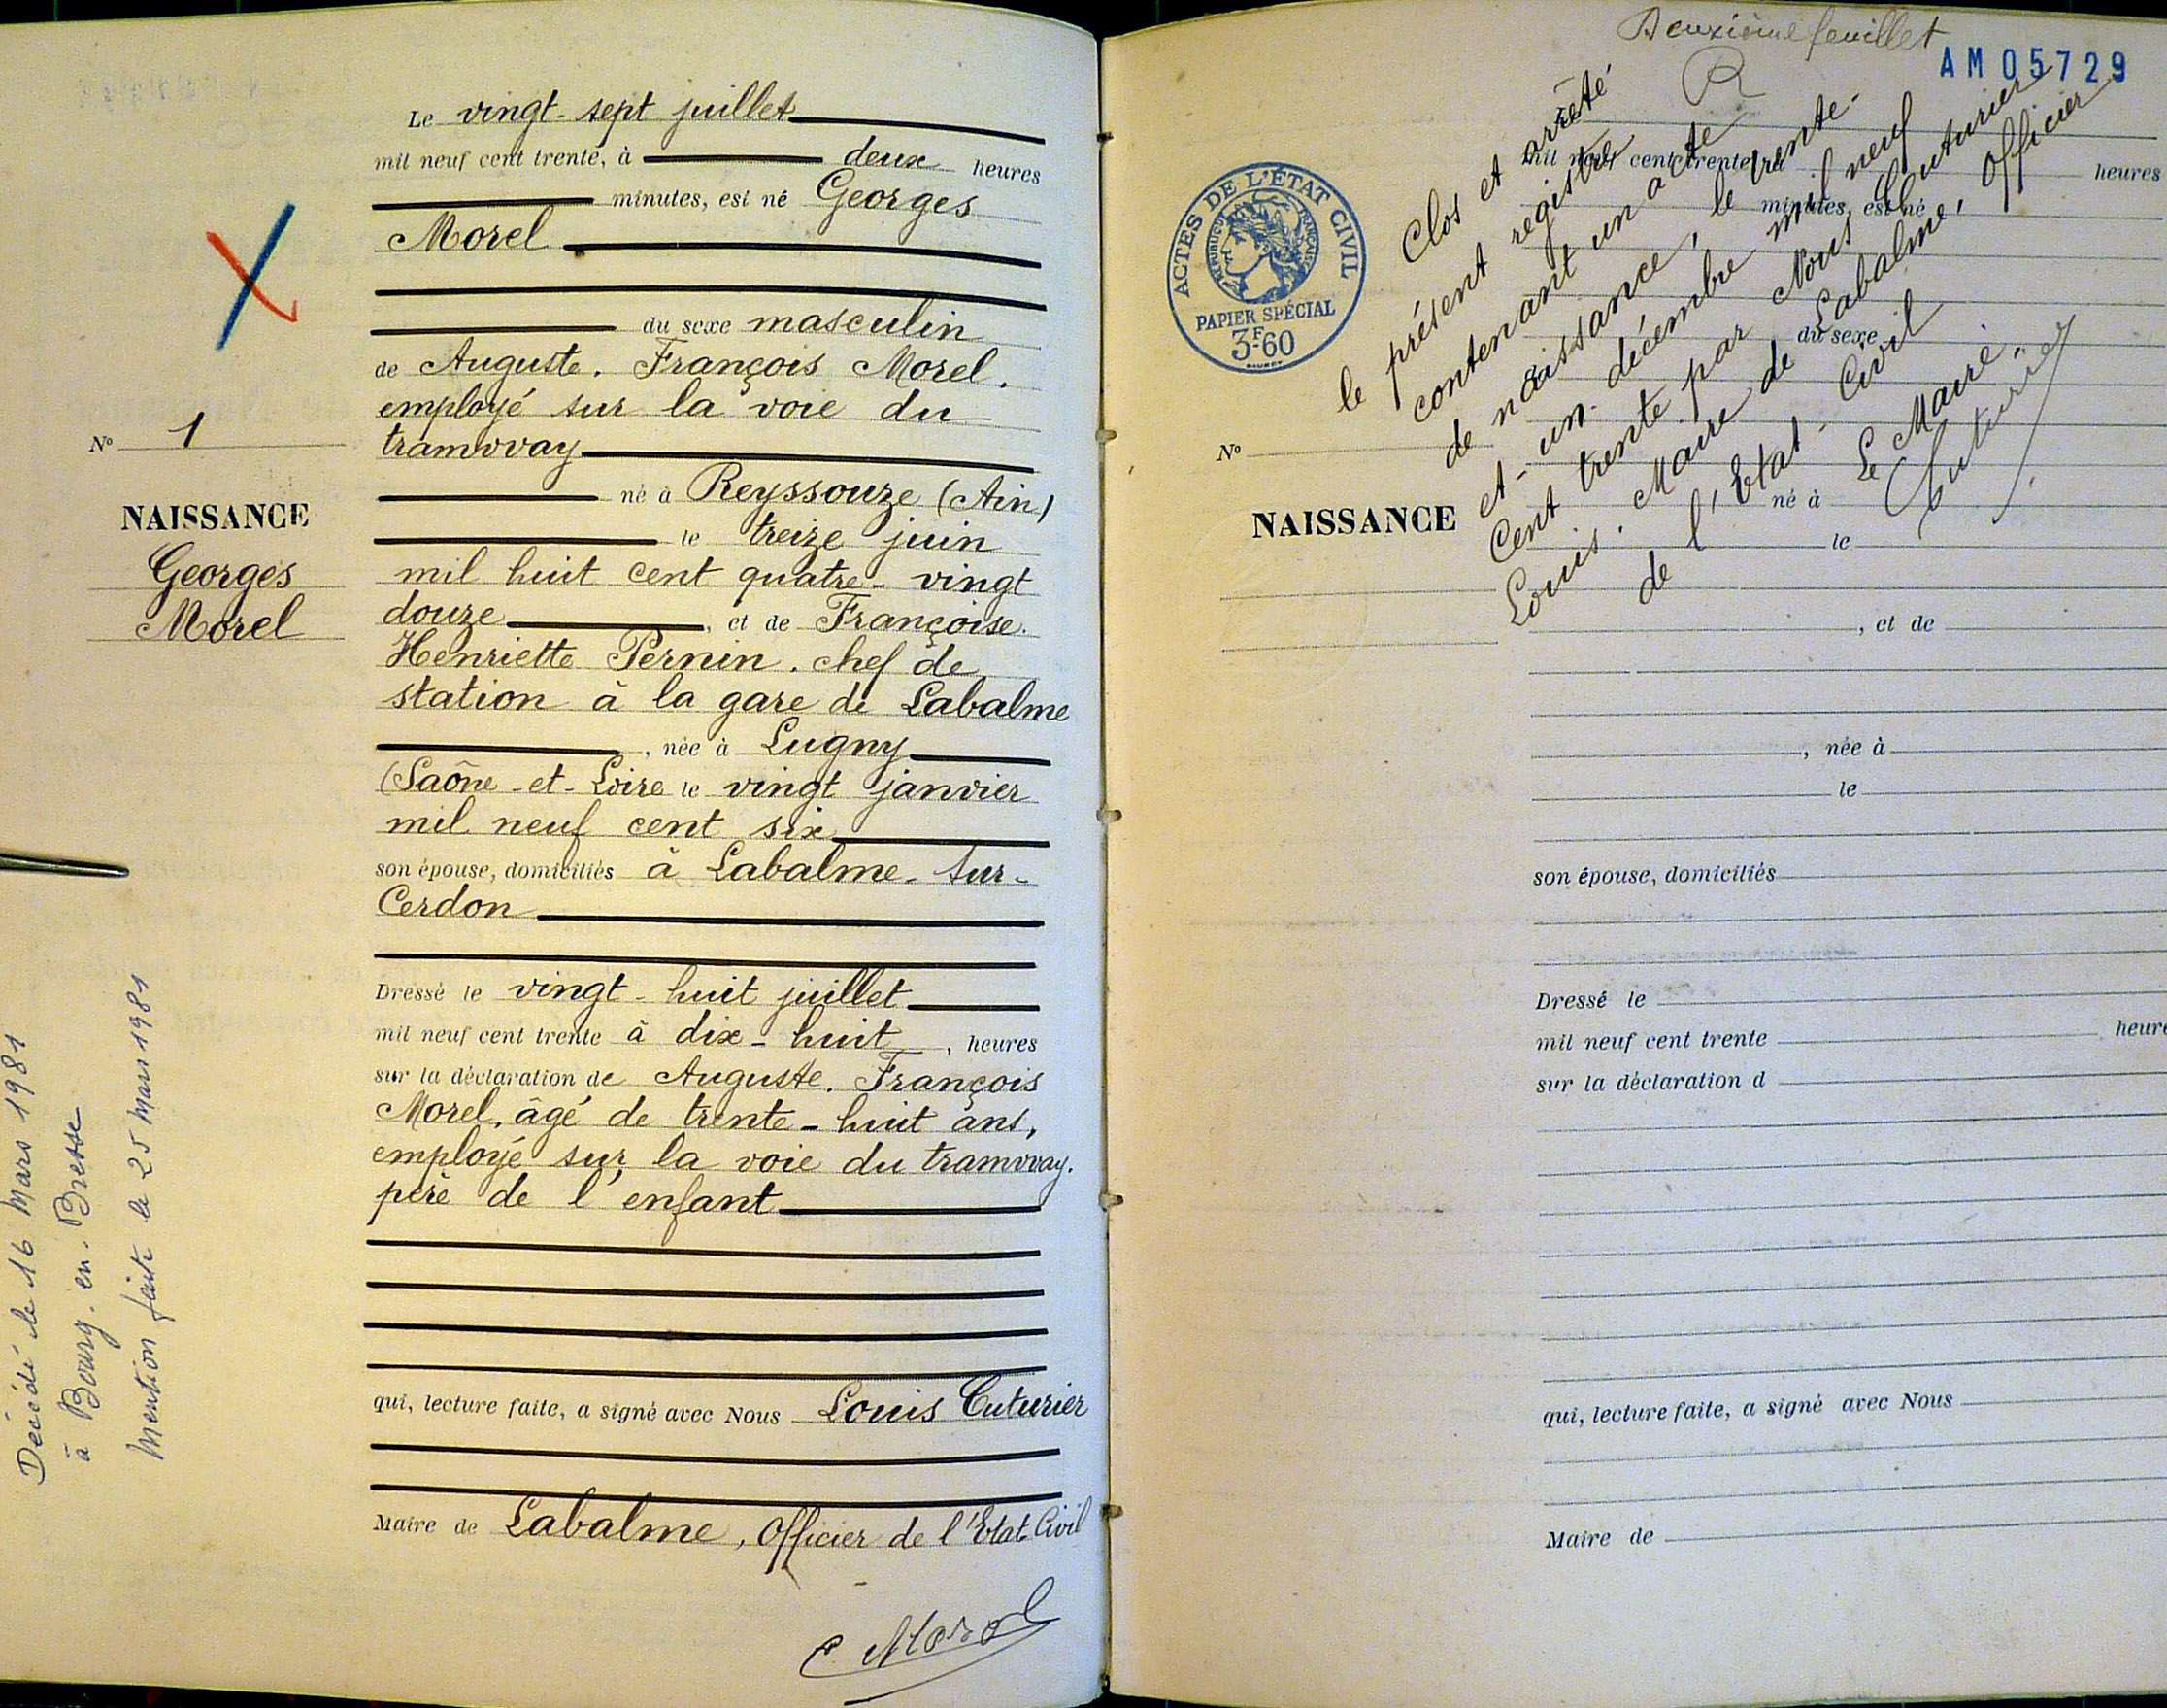 Le vingt-sept juillet
mil neuf cent trente, à deux heures
minutes, est né Georges
Morel
du sexe masculin
de Auguste. François Morel.
employé sur la voie du
tramway
né à Reyssouze (Ain)
le treize juin
mil huit cent quatre-vingt
douze, et de Françoise.
Henriette Pernin. chef de
station à la gare de Labalme
, née à Lugny
(Saône-et-Loire le vingt janvier
mil neuf cent six
son épouse, domiciliés à Labalme-sur-
Cerdon
Dressé le vingt-huit juillet
mil neuf cent trente à dix-huit, heures
sur la déclaration de Auguste. François
Morel, âgé de trente-huit ans,
employé sur la voie du tramway.
père de l'enfant
qui, lecture faite, a signé avec Nous Louis Cuturier
Maire de Labalme, Officier de l'Etat Civil
Morel
No 1
NAISSANCE
Georges
Morel
Décédé le 16 Mars 1981
à Bourg-en-Bresse
Mention faite le 25 Mars 1981
Deuxième feuillet
R
AM05729
ACTES DE L'ÉTAT CIVIL
RÉPUBLIQUE FRANÇAISE
PAPIER SPÉCIAL
3F60
Clos et arrêté
le présent registre
contenant un acte
de naissance, le trente-
et-un décembre mil neuf
Cent trente par Nous Cuturier
Louis. Maire de Labalme, Officier
de l'Etat-Civil
Le Maire.
Cuturier
mil neuf cent trente, à heures
minutes, est né
du sexe
No
NAISSANCE
né à
le
, et de
, née à
le
son épouse, domiciliés
Dressé le
mil neuf cent trente heure
sur la déclaration d
qui, lecture faite, a signé avec Nous
Maire de